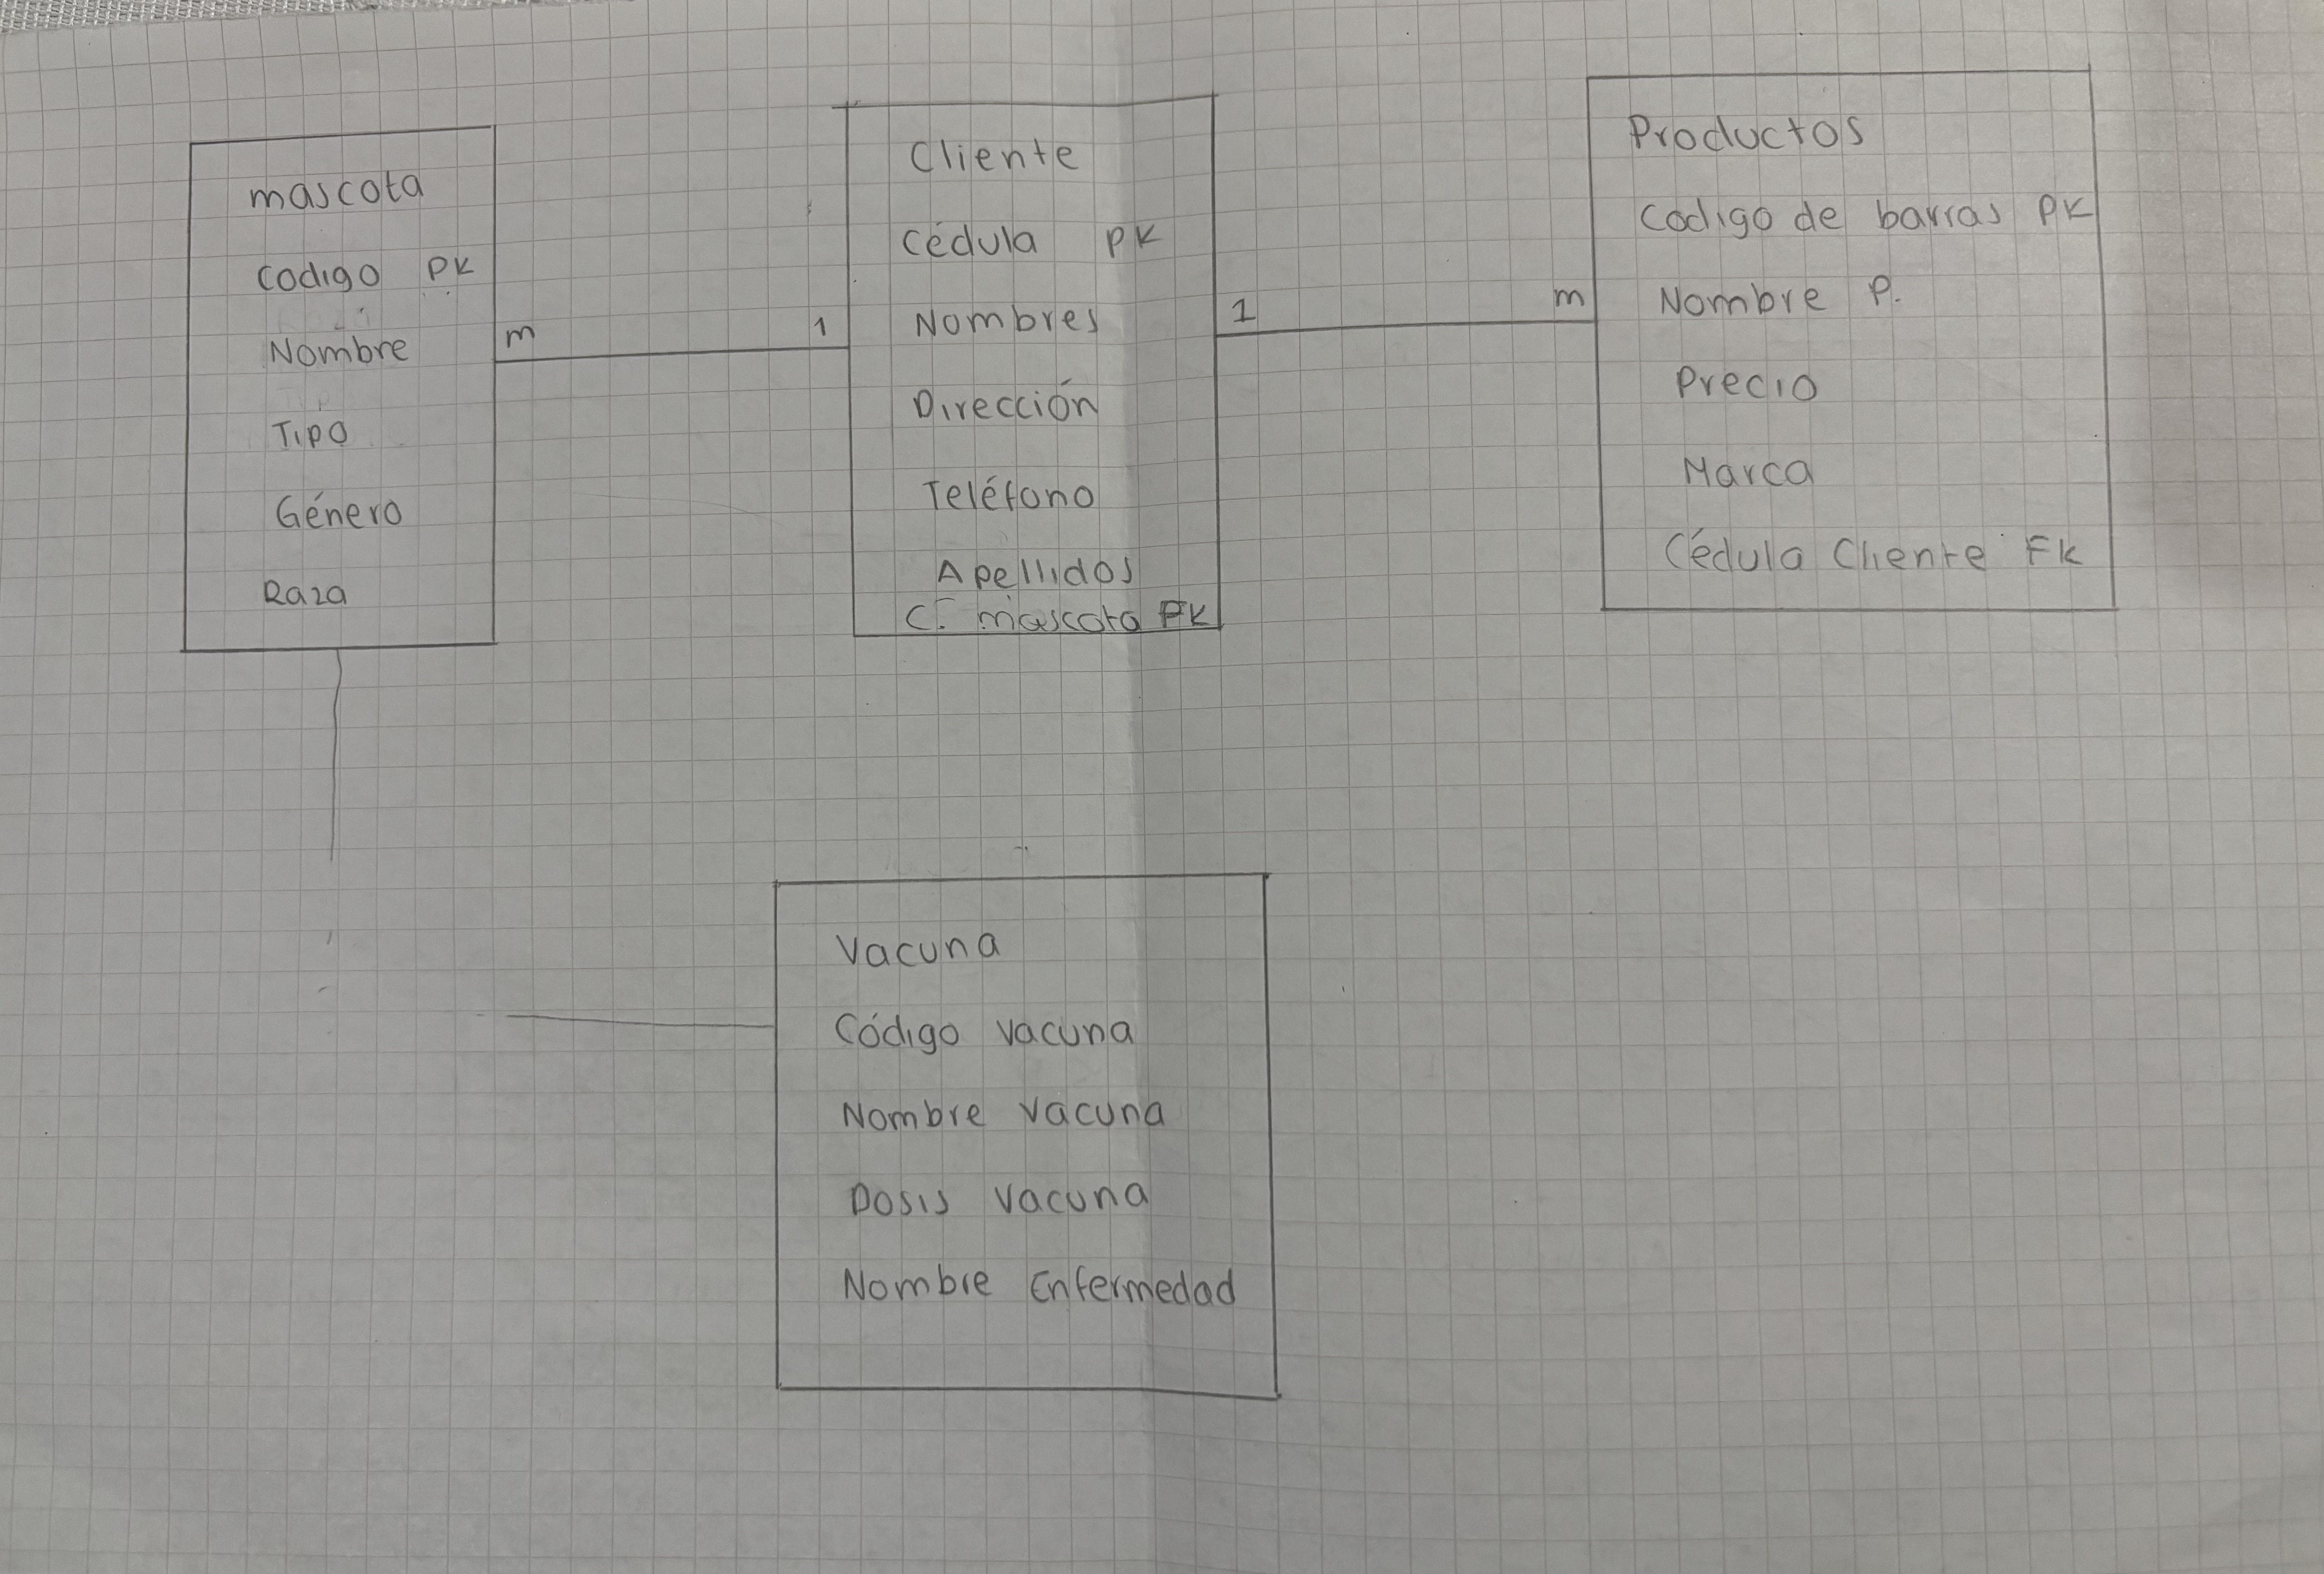 mascota
codigo PK
Nombre
Tipo
Género
Raza
m 1
Cliente
Cédula PK
Nombres
Dirección
Teléfono
Apellidos
C. mascota FK
1 m
Productos
Codigo de barras PK
Nombre P.
Precio
Marca
Cédula Cliente FK
Vacuna
Código vacuna
Nombre vacuna
Dosis vacuna
Nombre Enfermedad